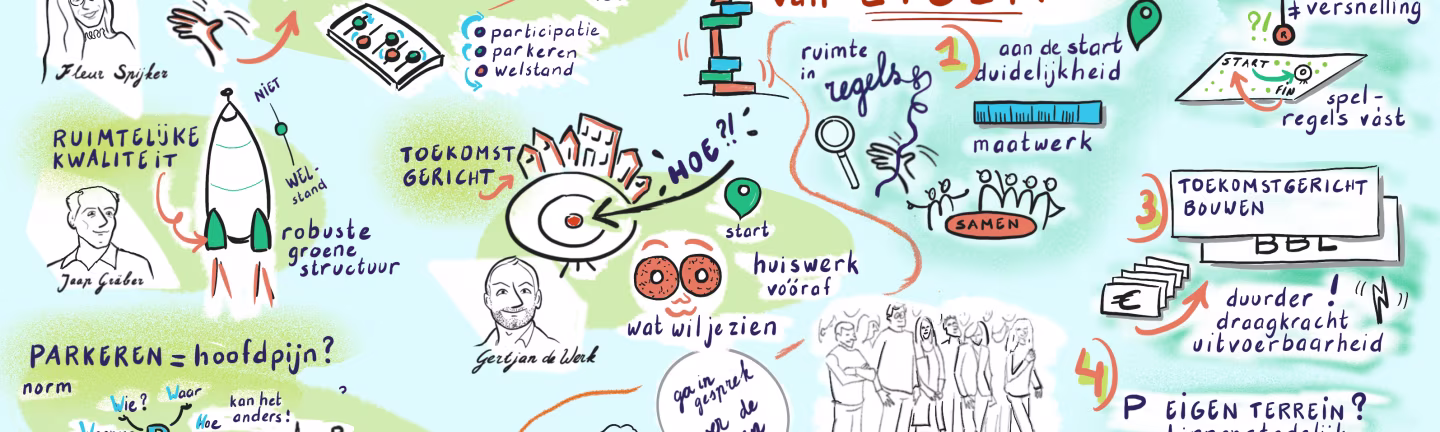 Fleur Spijker
participatie
parkeren
welstand
RUIMTELIJKE
KWALITEIT
NIET
WEL-
stand
robuste
groene
structuur
Jaap Gräber
PARKEREN = hoofdpijn?
norm
Wie?
Waar
Hoe
kan het
anders!
?
TOEKOMST
GERICHT
HOE?!
start
huiswerk
vóóraf
wat wil je zien
Gertjan de Werk
ga in
gesprek
de
ruimte
in
regels
1)
aan de start
duidelijkheid
maatwerk
SAMEN
?!
≠ versnelling
R
START
FIN
spel-
regels vast
3)
TOEKOMSTGERICHT
BOUWEN
BBL
€
duurder !
draagkracht
uitvoerbaarheid
4)
P EIGEN TERREIN?